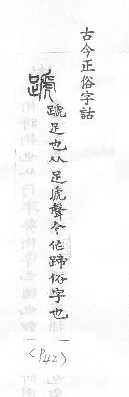 古今正俗字詁
蹏 蹏足也从足虒聲今作蹄俗字也
(P42)